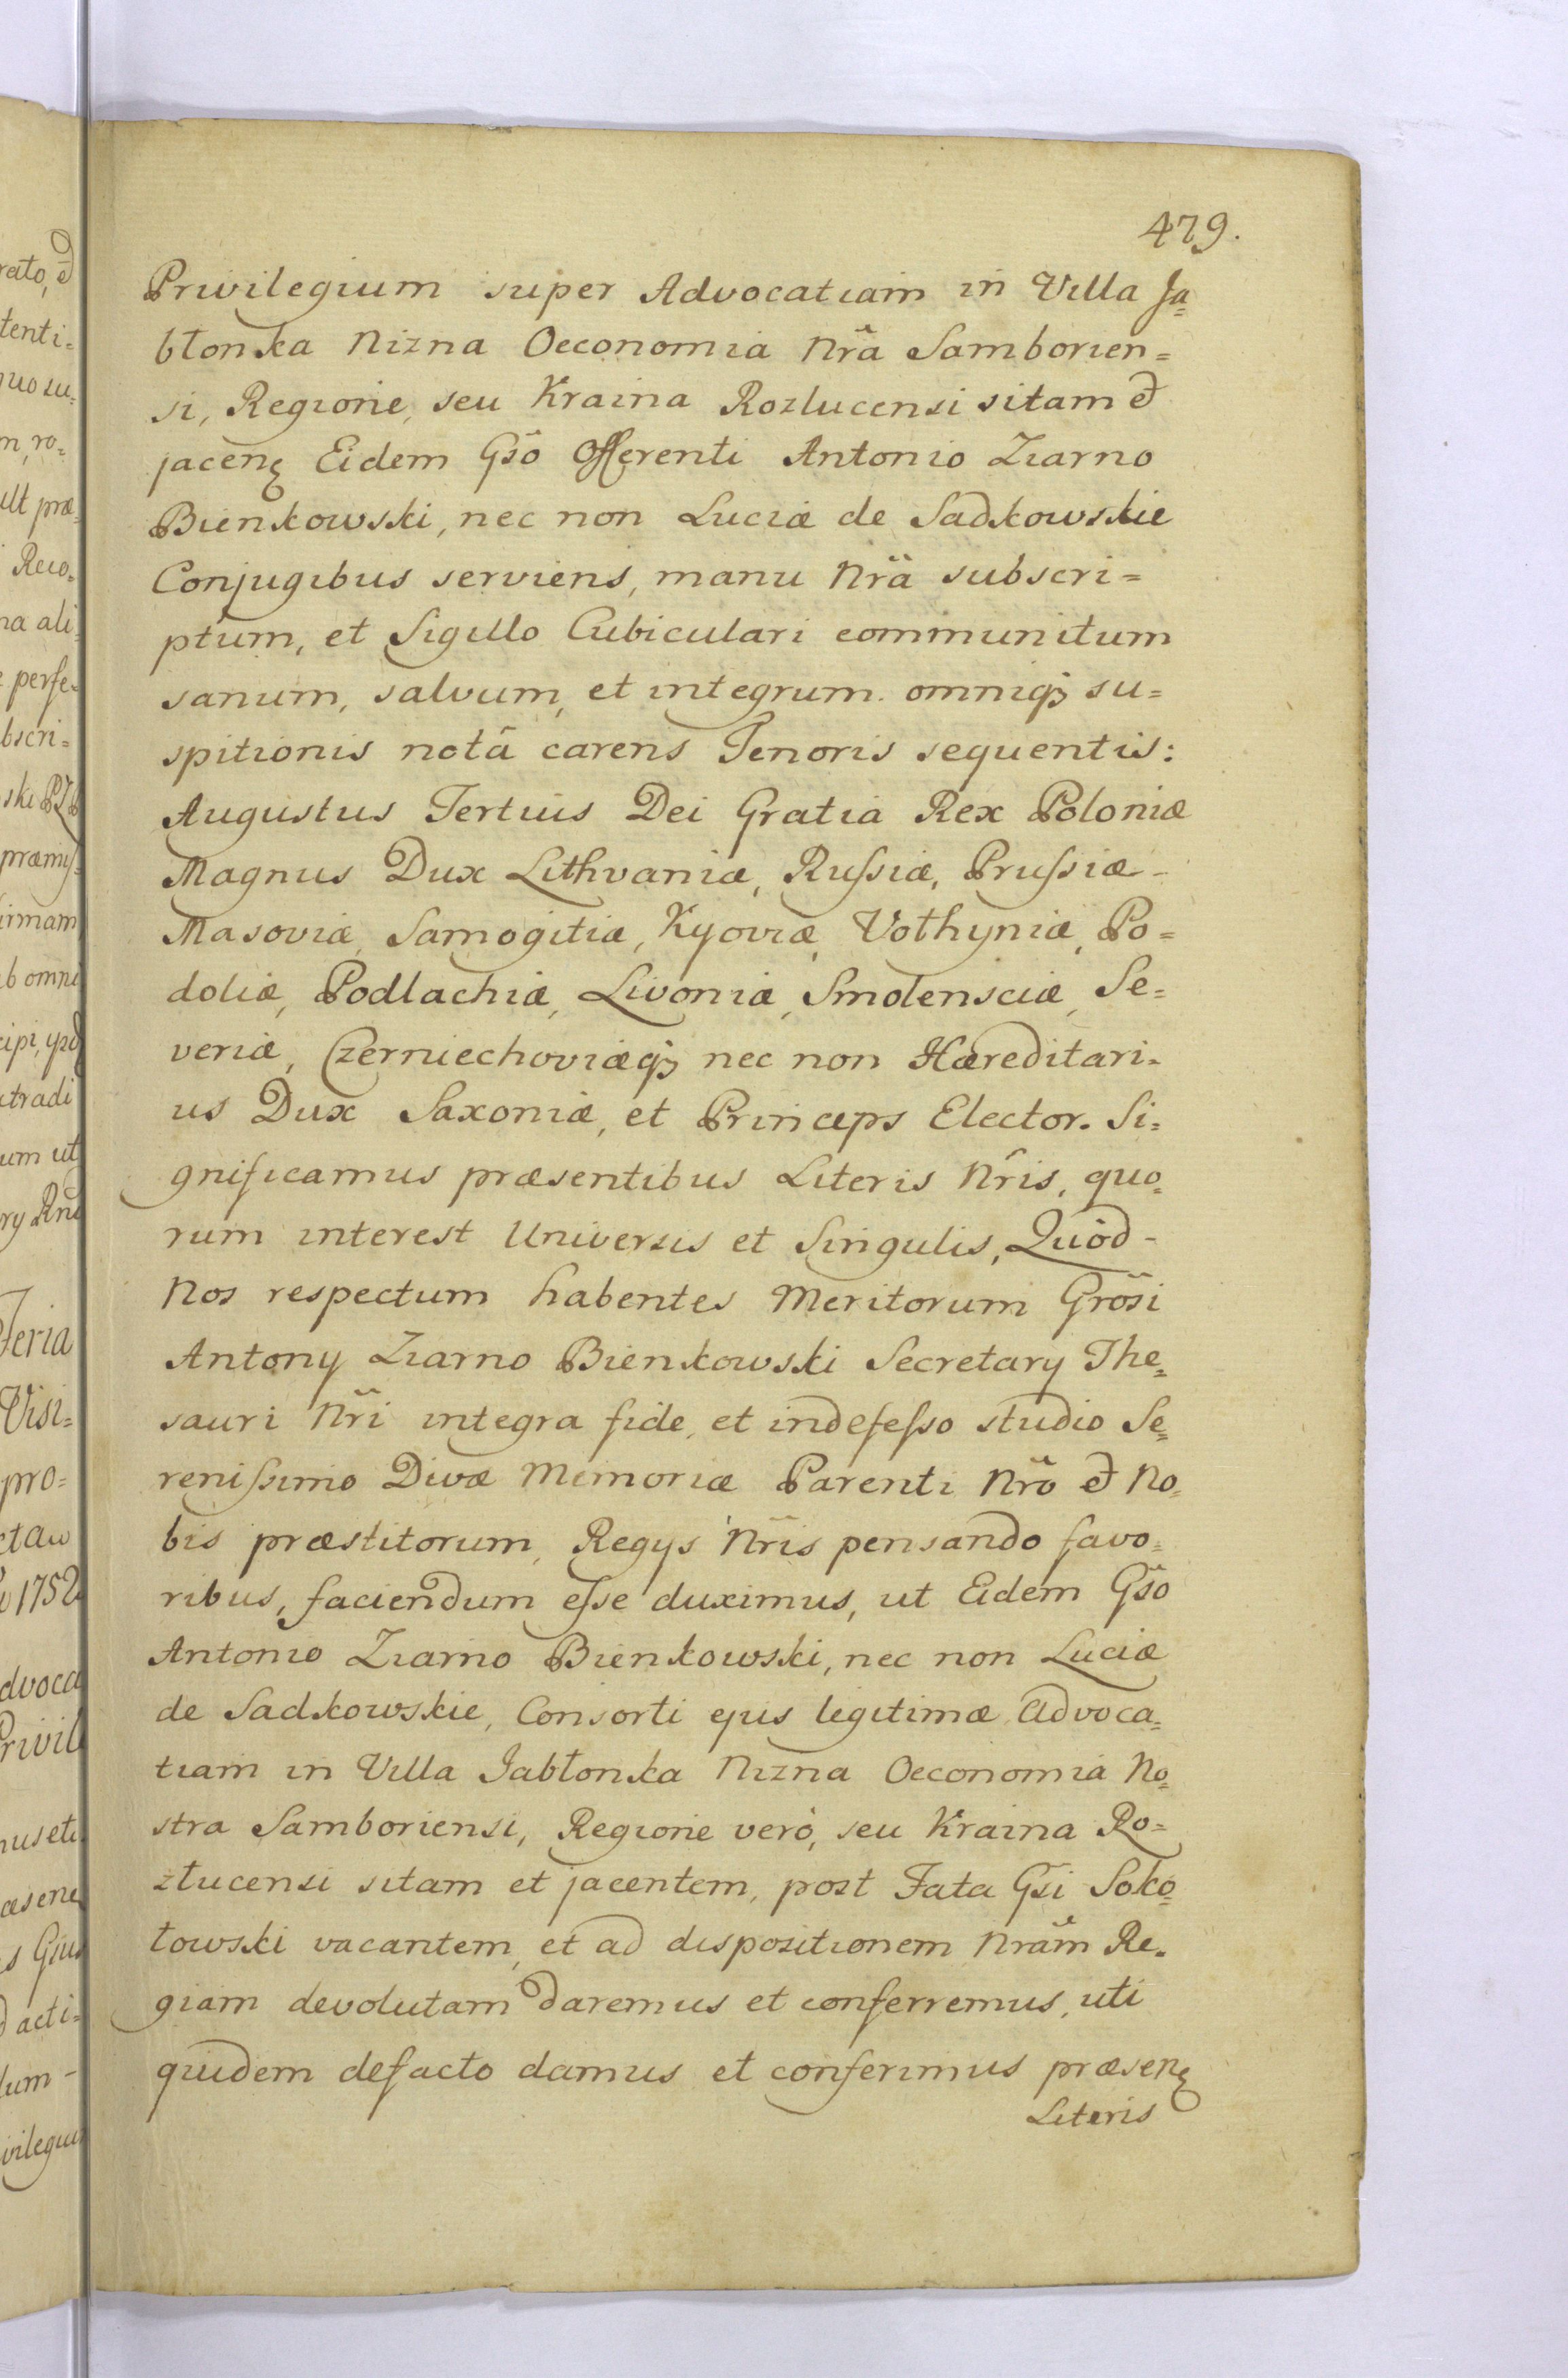 479.
Privilegium super Advocatiam in Villa Ja=
błonka Nizna Oeconomia Nr̃a Samborien=
si, Regione, seu Kraina Rozlucensi sitam et
jacenę Eidem Gsõ Offerenti Antonio Ziarno
Bienkowski, nec non Luciæ de Sadkowskie
Conjugibus serviens, manu Nr̃a subscri=
ptum, et Sigillo Cubiculari communitum
sanum, salvum, et integrum. omniq3 su=
spitionis notâ carens Tenoris sequentis:
Augustus Tertius Dei Gratia Rex Poloniæ
Magnus Dux Lithvaniæ, Rufsiæ, Prufsiæ-
Masoviæ, Samogitiæ, Kyoviæ, Vołhyniæ, Po=
doliæ, Podlachiæ, Livoniæ, Smolensciæ, Se=
veriæ, Czerniechoviæq3 nec non Hæreditari=
us Dux Saxoniæ, et Princeps Elector. Si=
gnificamus præsentibus Literis Nr̃is, quo=
rum interest Universis et Singulis, Quòd-
Nos respectum habentes Meritorum Grõsi
Antony Ziarno Bienkowski Secretary The=
sauri Nr̃i integra fide, et indefefso studio Se=
renifsimo Divæ Memoriæ Parenti Nr̃o et No=
bis præstitorum, Regys Nr̃is pensando favo=
ribus, faciendum efse duximus, ut Eidem Gsõ
Antonio Ziarno Bienkowski, nec non Luciæ
de Sadkowskie, Consorti ejus legitimæ Advoca=
tiam in Villa Jabłonka Nizna Oeconomia No=
stra Samboriensi, Regione verò, seu Kraina Ro=
złucensi sitam et jacentem, post Fata Gsĩ Soko=
łowski vacantem, et ad dispositionem Nr̃am Re=
giam devolutam daremus et conferremus, uti
quidem defacto damus et conferimus præsenę
Literis